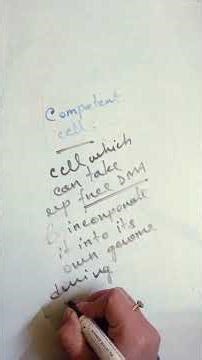 Competent
cell:
cell which
can take
up free DNA
& incorporate
it into its
own genome
during